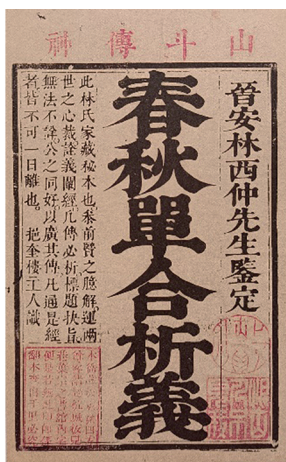 山斗傳
晉安林西仲先生鑒定
春秋單合析義
此林氏家藏秘本也彙前賢之臆解運兩
世之心裁詮義闡經凡傳必析標題抉旨
無法不詮公之同好以廣其傳凡通是經
者皆不可一日離也。 挹奎樓主人識